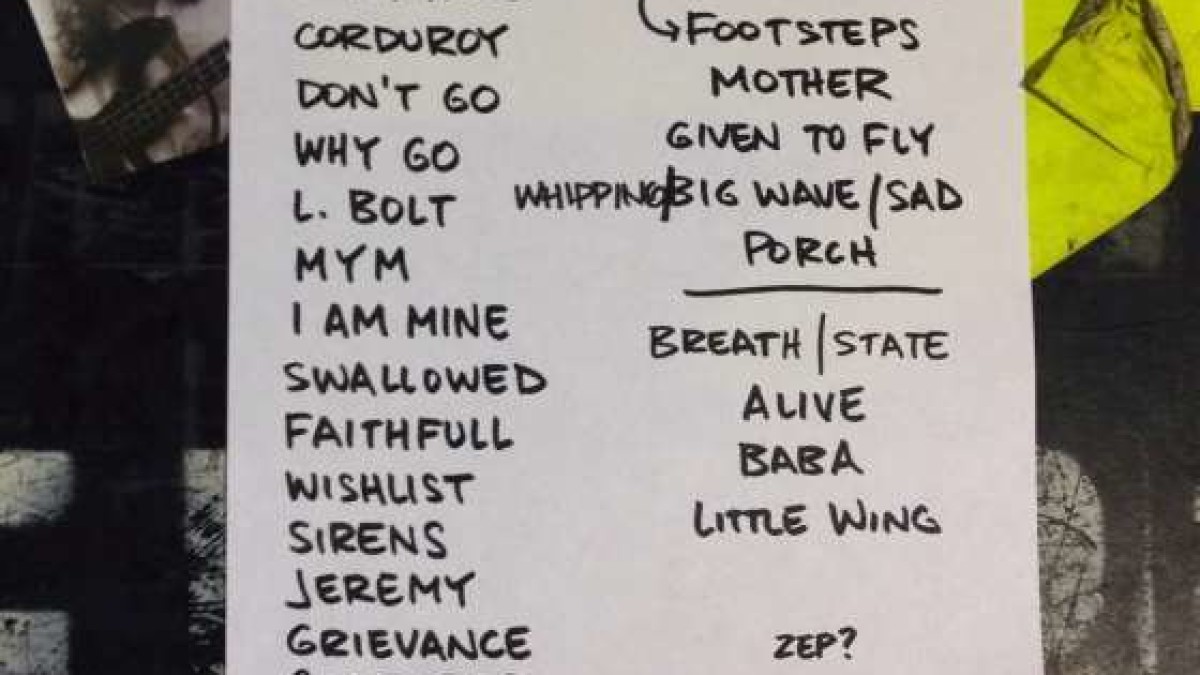 CORDUROY
DON'T GO
WHY GO
L. BOLT
MYM
I AM MINE
SWALLOWED
FAITHFULL
WISHLIST
SIRENS
JEREMY
GRIEVANCE
FOOTSTEPS
MOTHER
GIVEN TO FLY
WHIPPING/BIG WAVE/SAD
PORCH
BREATH/STATE
ALIVE
BABA
LITTLE WING
ZEP?